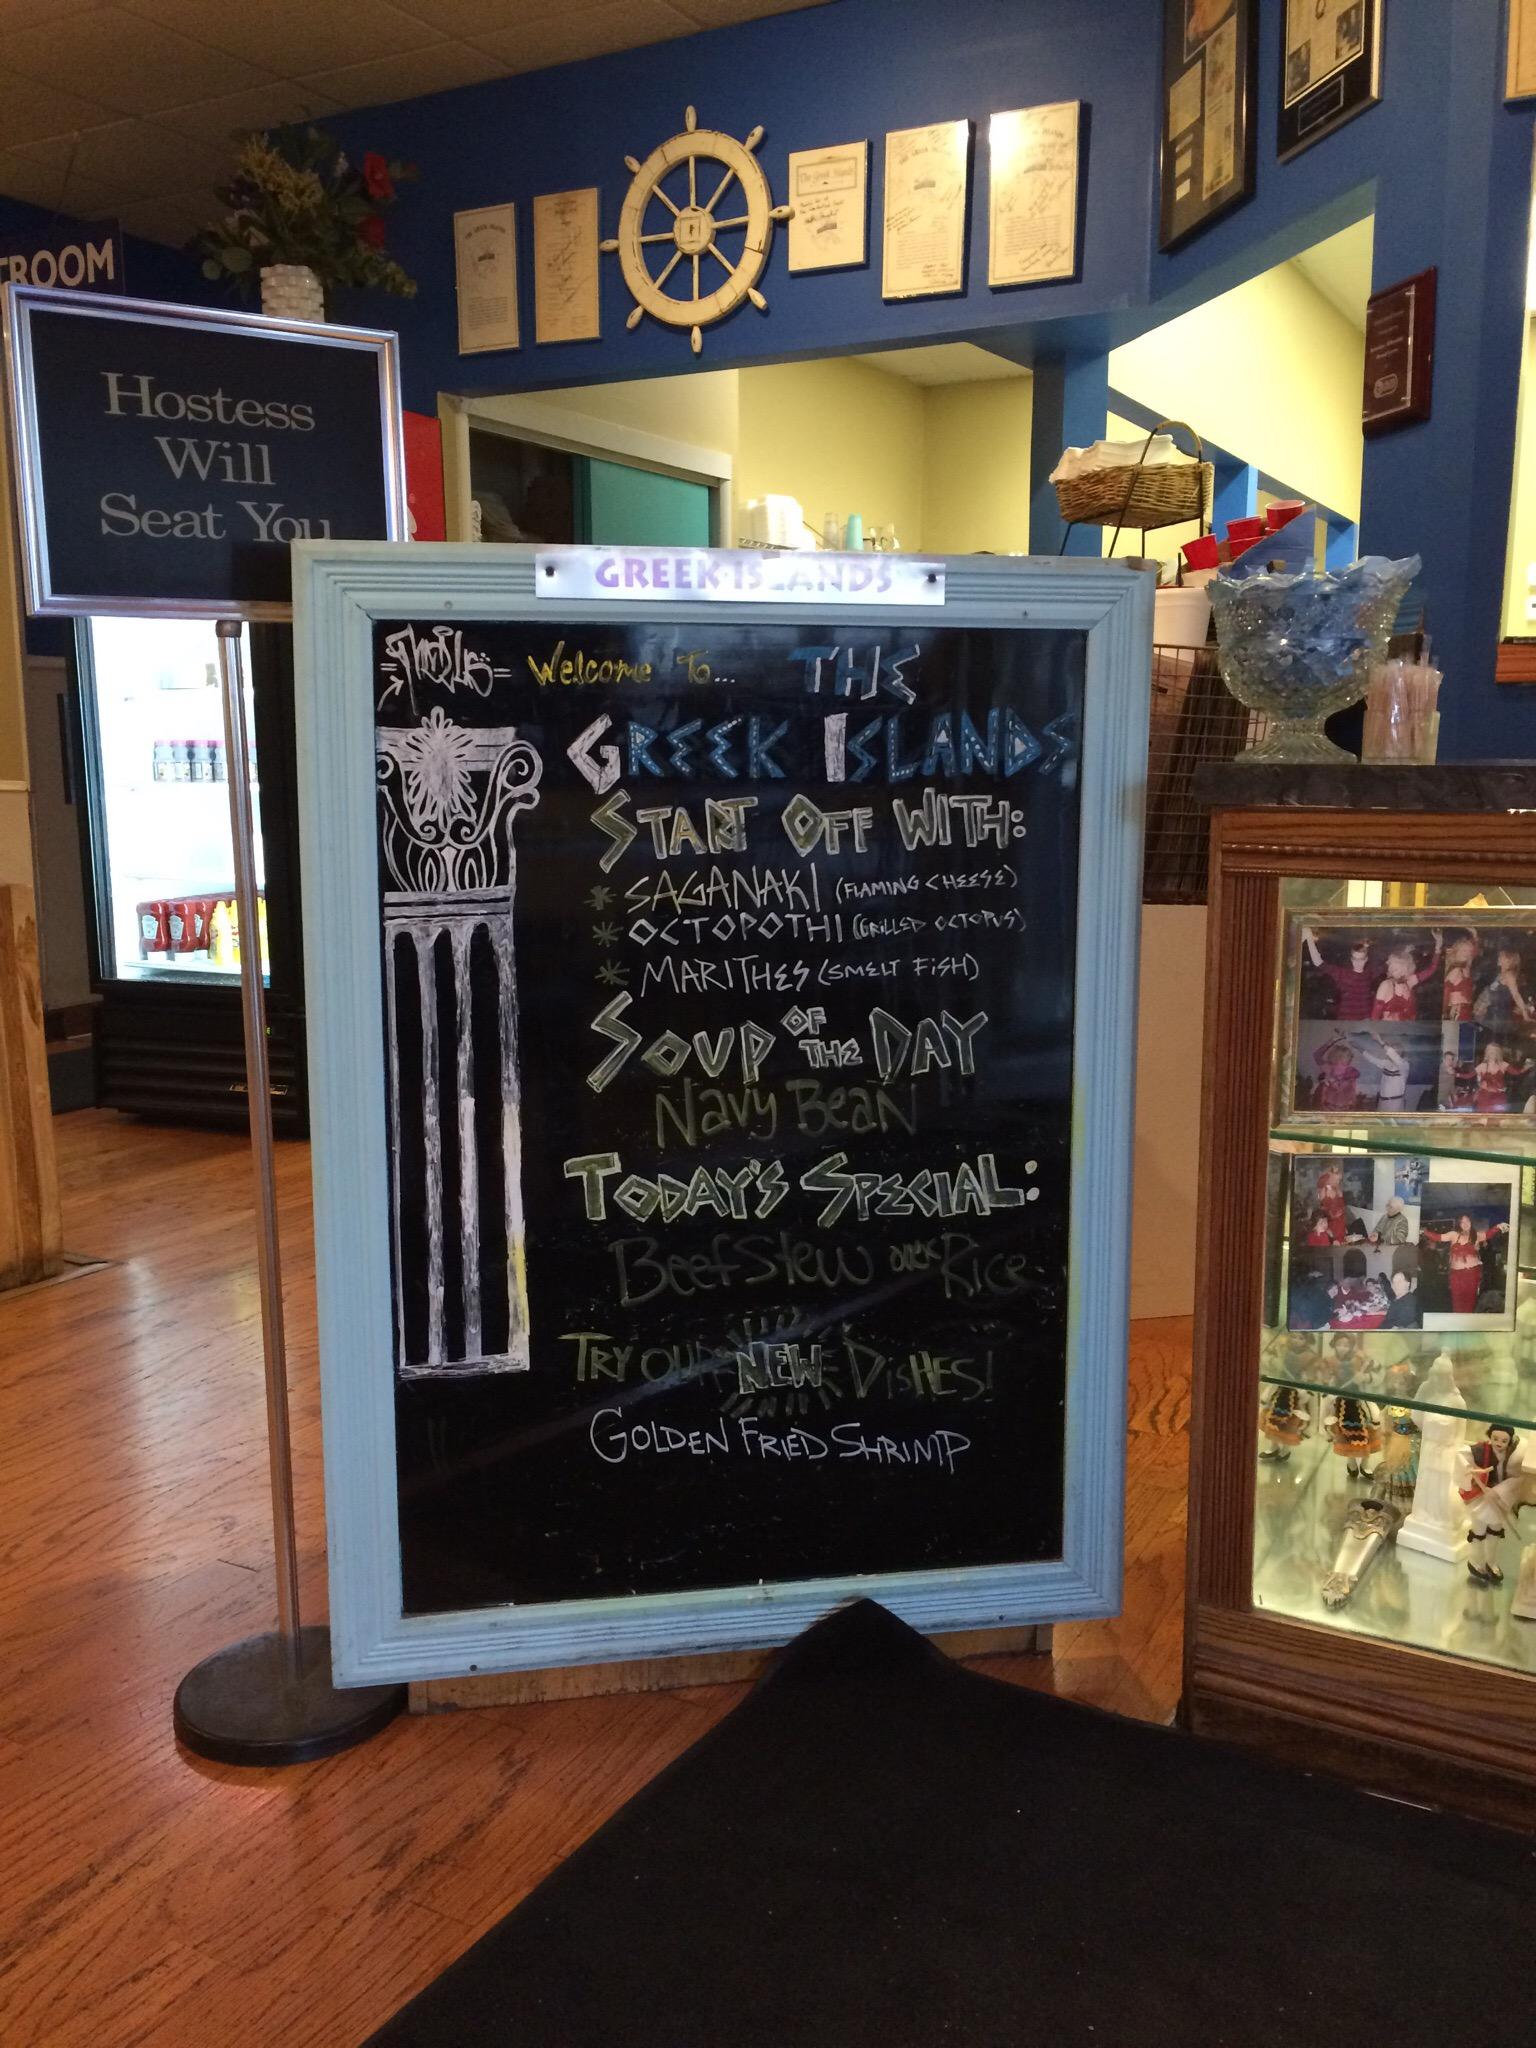 TROOM
Hostess
Will
Seat You
The Greek Islands
GREEK ISLANDS
Welcome To... THE
GREEK ISLANDS
START OFF WITH:
* SAGANAKI (FLAMING CHEESE)
* OCTOPOTHI (GRILLED OCTOPUS)
* MARITHES (SMELT FISH)
SOUP OF THE DAY
Navy Bean
TODAY'S SPECIAL:
Beef Stew over Rice
TRY OUR NEW DISHES!
GOLDEN FRIED SHRIMP